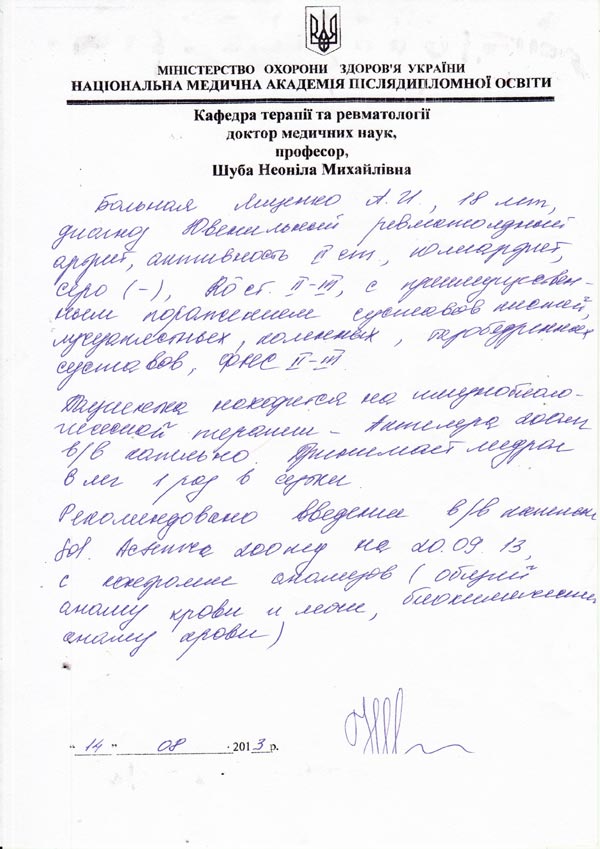 МІНІСТЕРСТВО ОХОРОНИ ЗДОРОВ'Я УКРАЇНИ
НАЦІОНАЛЬНА МЕДИЧНА АКАДЕМІЯ ПІСЛЯДИПЛОМНОЇ ОСВІТИ
Кафедра терапії та ревматології
доктор медичних наук,
професор,
Шуба Неоніла Михайлівна
Больная Ященко А.И., 18 лет,
диагноз Ювенильный ревматоидный
артрит, активность II ст.,
серо (-), Rö ст. II-III, с преимуществен-
ным поражением суставов кистей,
лучезапястных, коленных, тазобедренных
суставов, ФНС II-III.
Пациентка находится на иммунобиоло-
гической терапии - Актемра 200мг
в/в капельно. Принимает медрол
8 мг 1 раз в сутки.
Рекомендовано введение в/в капельно
Sol. 200мг на 20.09.13,
с контролем анализов (общий
анализ крови и мочи, биохимический
анализ крови)
"14" 08 2013 р.